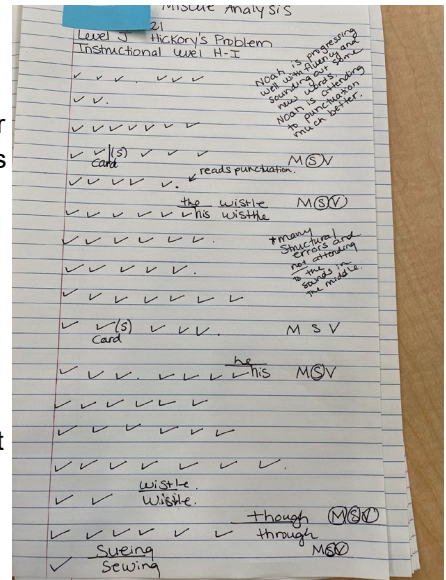 Miscue Analysis
21
Level J Hickory's Problem
Instructional level H-I
Noah is progressing
well with fluency and
sounding out some
new words.
Noah is attending
to punctuation
much better.
✓ ✓ ✓ . ✓ ✓ ✓
✓ ✓.
✓ ✓ ✓ ✓ ✓ ✓
✓ ✓|(s) ✓ ✓ ✓ M S V
Card
✓ ✓ ✓ ✓ ✓. reads punctuation.
the wistle M S V
✓ ✓ ✓ ✓ ✓ ✓ his wistle
✓ ✓ ✓ ✓ ✓ ✓.
* many
structural
errors and
not attending
to the
sounds in
the middle.
✓ ✓ ✓ ✓ ✓.
✓ ✓ ✓ ✓ ✓ ✓ ✓
✓ ✓(s) ✓ ✓ ✓. M S V
Card
he
✓ ✓ ✓. ✓ ✓ ✓ ✓ his M S V
✓ ✓ ✓ ✓ ✓ ✓
✓ ✓ ✓ ✓ ✓ ✓
✓ ✓ ✓ ✓ ✓ ✓.
wistle.
✓ ✓ Wistle.
though M S V
✓ ✓ ✓ ✓ ✓ ✓ through
Sueing M S V
✓ Sewing